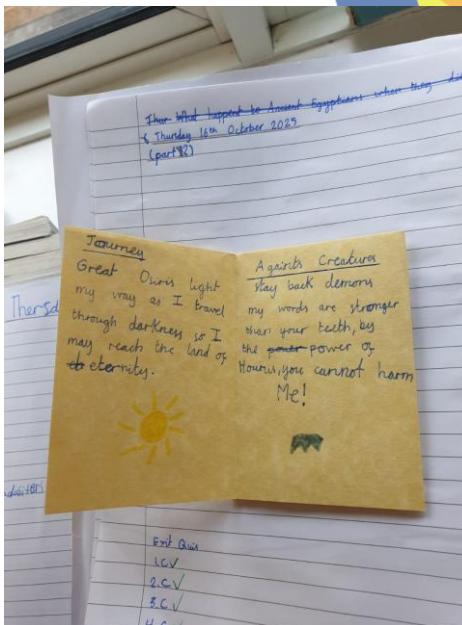 Thur What happent to Ancient Egyptians when they di
Thursday 16th October 2025
(part 2)
Journey
Great Osiris light
my way as I travel
through darkness so I
may reach the land of
eternity.
Againts Creatures
stay back demons
my words are stronger
than your teeth, by
the power power of
Hourus, you cannot harm
Me!
Thersd
Exit Quis
1.C✓
2.C✓
3.C✓